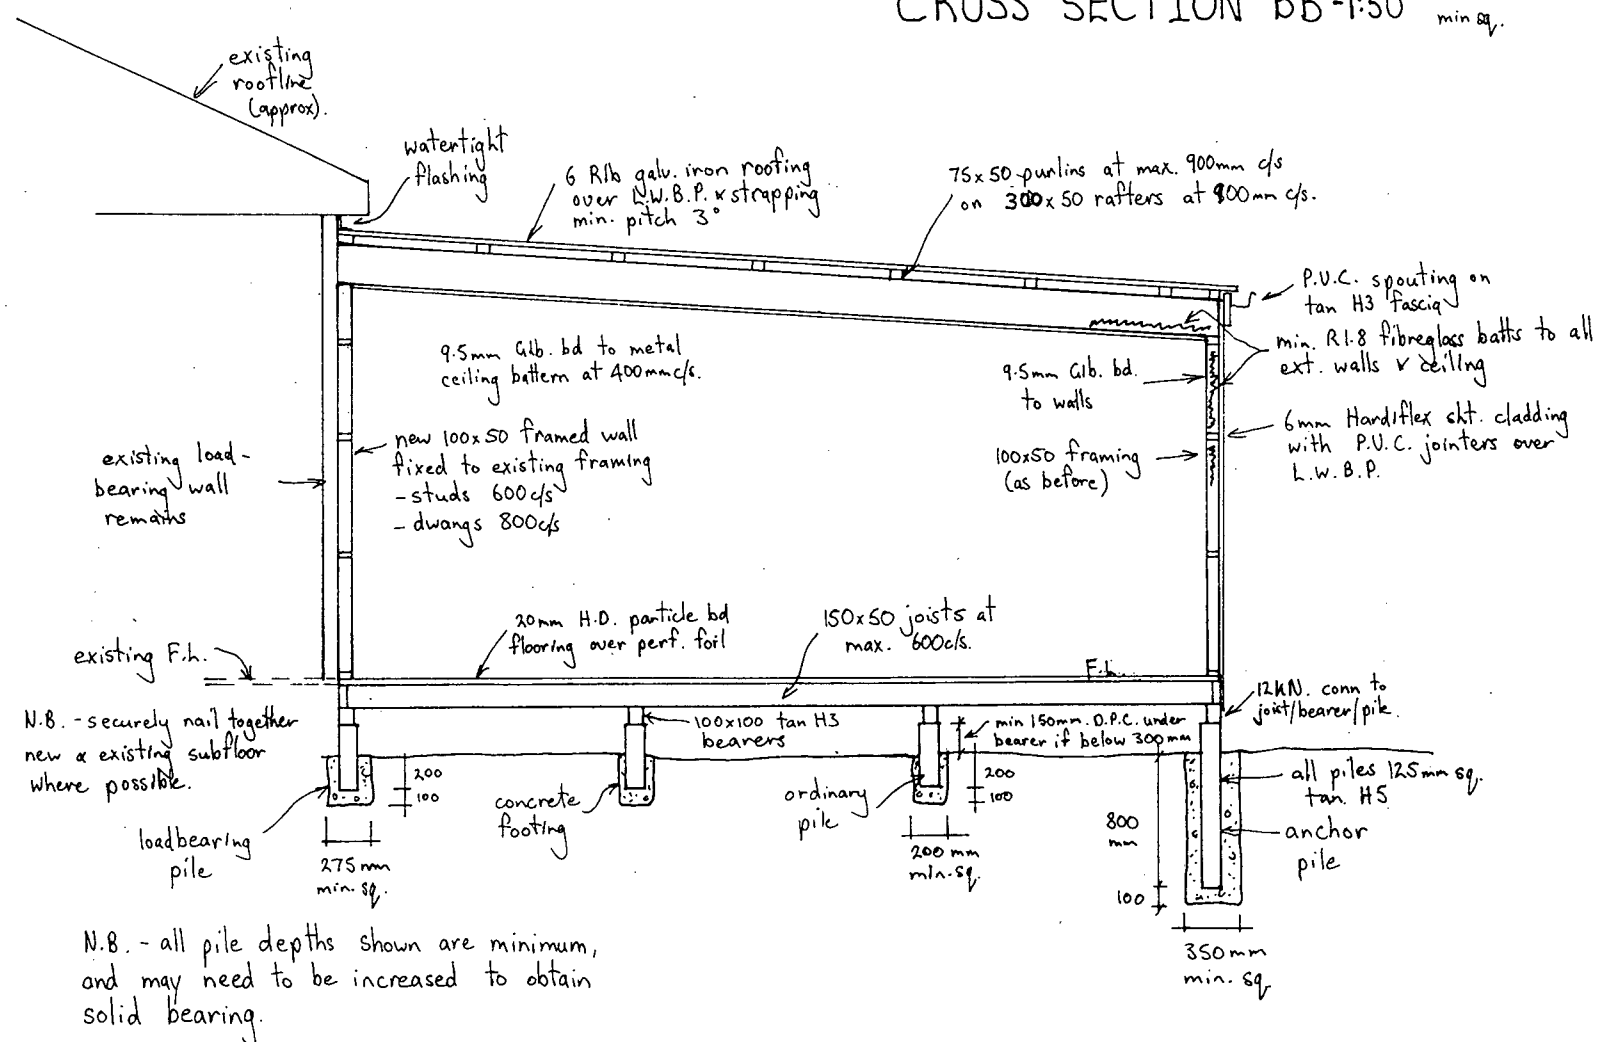 CROSS SECTION BB -1:50
min sq.
existing
roofline
(approx).
watertight
flashing
6 Rib galv. iron roofing
over L.W.B.P. & strapping
min. pitch 3°
75x50 purlins at max. 900mm c/s
on 300x50 rafters at 900mm c/s.
P.V.C. spouting on
tan H3 fascia
min. R1.8 fibreglass batts to all
ext. walls & ceiling
9.5mm Gib. bd to metal
ceiling battern at 400mm c/s.
9.5mm Gib. bd.
to walls
6mm Hardiflex sht. cladding
with P.V.C. jointers over
L.W.B.P.
existing load-
bearing wall
remains
new 100x50 framed wall
fixed to existing framing
- studs 600c/s
- dwangs 800c/s
100x50 framing
(as before)
20mm H.D. particle bd
flooring over perf. foil
150x50 joists at
max. 600c/s.
existing F.h.
F.L.
N.B. - securely nail together
new & existing subfloor
where possible.
100x100 tan H3
bearers
min 150mm. D.P.C. under
bearer if below 300mm
12KN. conn to
joist/bearer/pile.
200
100
200
100
concrete
footing
ordinary
pile
all piles 125mm sq.
tan. H5
loadbearing
pile
275mm
min. sq.
200mm
min. sq.
800
mm
100
anchor
pile
350mm
min. sq
N.B. - all pile depths shown are minimum,
and may need to be increased to obtain
solid bearing.